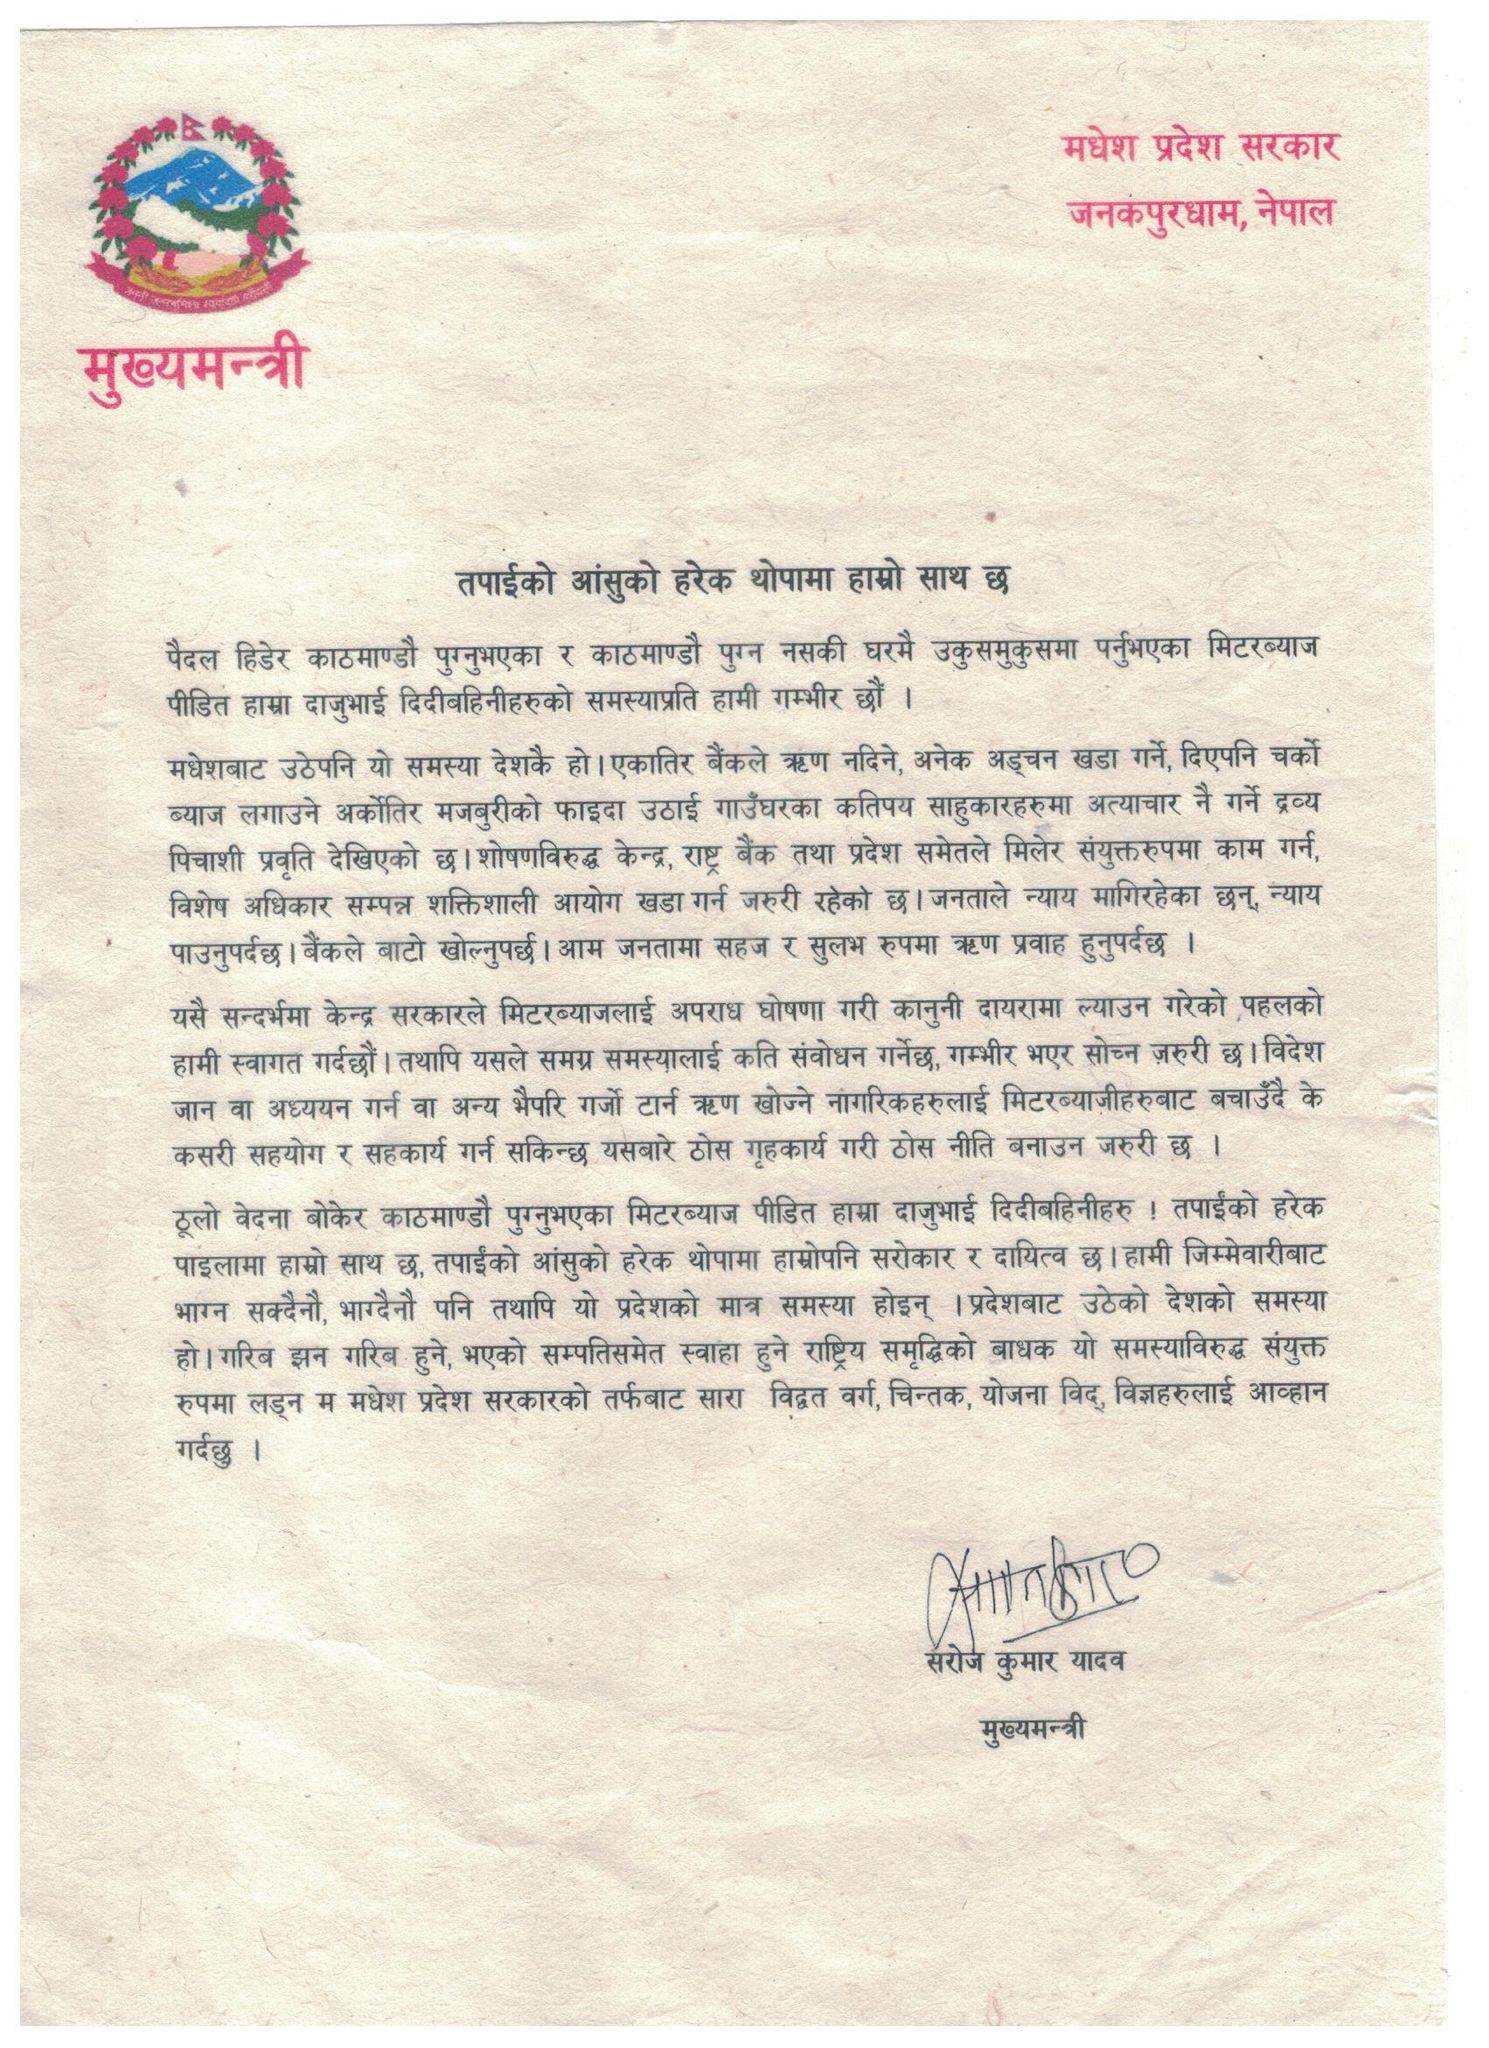 मधेश प्रदेश सरकार
जनकपुरधाम, नेपाल
मुख्यमन्त्री
तपाईको आंसुको हरेक थोपामा हाम्रो साथ छ
पैदल हिडेर काठमाण्डौ पुग्नुभएका र काठमाण्डौ पुग्न नसकी घरमै उकुसमुकुसमा पर्नुभएका मिटरब्याज
पीडित हाम्रा दाजुभाई दिदीबहिनीहरुको समस्याप्रति हामी गम्भीर छौं ।
मधेशबाट उठेपनि यो समस्या देशकै हो। एकातिर बैंकले ऋण नदिने, अनेक अड्चन खडा गर्ने, दिएपनि चर्को
ब्याज लगाउने अर्कोतिर मजबुरीको फाइदा उठाई गाउँघरका कतिपय साहुकारहरुमा अत्याचार नै गर्ने द्रव्य
पिचाशी प्रवृति देखिएको छ। शोषणविरुद्ध केन्द्र, राष्ट्र बैंक तथा प्रदेश समेतले मिलेर संयुक्तरुपमा काम गर्न,
विशेष अधिकार सम्पन्न शक्तिशाली आयोग खडा गर्न जरुरी रहेको छ। जनताले न्याय मागिरहेका छन्, न्याय
पाउनुपर्दछ। बैंकले बाटो खोल्नुपर्छ। आम जनतामा सहज र सुलभ रुपमा ऋण प्रवाह हुनुपर्दछ ।
यसै सन्दर्भमा केन्द्र सरकारले मिटरब्याजलाई अपराध घोषणा गरी कानुनी दायरामा ल्याउन गरेको पहलको
हामी स्वागत गर्दछौं। तथापि यसले समग्र समस्यालाई कति संवोधन गर्नेछ, गम्भीर भएर सोच्न जरुरी छ। विदेश
जान वा अध्ययन गर्न वा अन्य भैपरि गर्जो टार्न ऋण खोज्ने नागरिकहरुलाई मिटरब्याजीहरुबाट बचाउँदै के
कसरी सहयोग र सहकार्य गर्न सकिन्छ यसबारे ठोस गृहकार्य गरी ठोस नीति बनाउन जरुरी छ ।
ठूलो वेदना बोकेर काठमाण्डौ पुग्नुभएका मिटरब्याज पीडित हाम्रा दाजुभाई दिदीबहिनीहरु ! तपाईंको हरेक
पाइलामा हाम्रो साथ छ, तपाईंको आंसुको हरेक थोपामा हाम्रोपनि सरोकार र दायित्व छ। हामी जिम्मेवारीबाट
भाग्न सक्दैनौ, भाग्दैनौ पनि तथापि यो प्रदेशको मात्र समस्या होइन् । प्रदेशबाट उठेको देशको समस्या
हो। गरिब झन गरिब हुने, भएको सम्पतिसमेत स्वाहा हुने राष्ट्रिय समृद्धिको बाधक यो समस्याविरुद्ध संयुक्त
रुपमा लड्न म मधेश प्रदेश सरकारको तर्फबाट सारा विद्वत वर्ग, चिन्तक, योजना विद्, विज्ञहरुलाई आव्हान
गर्दछु ।
सरोज कुमार यादव
मुख्यमन्त्री